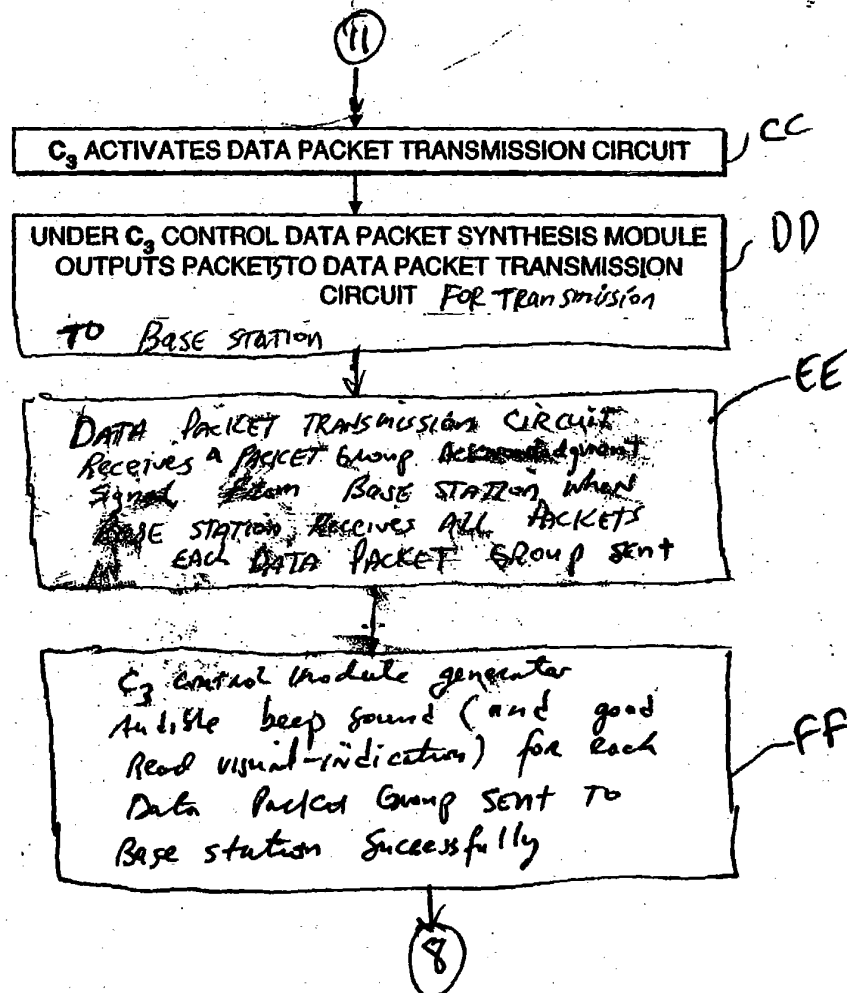 11
C₃ ACTIVATES DATA PACKET TRANSMISSION CIRCUIT
CC
UNDER C₃ CONTROL DATA PACKET SYNTHESIS MODULE
OUTPUTS PACKETS TO DATA PACKET TRANSMISSION
CIRCUIT FOR Transmission
TO BASE STATION
DD
DATA PACKET TRANSMISSION CIRCUIT
Receives a PACKET Group Acknowledgment
Signal From BASE STATION when
BASE STATION RECEIVES ALL PACKETS
EACH DATA PACKET GROUP SENT
EE
C₃ control module generator
Audible beep sound (and good
Read visual-indication) for each
Data Packet Group SENT TO
Base station Successfully
FF
8